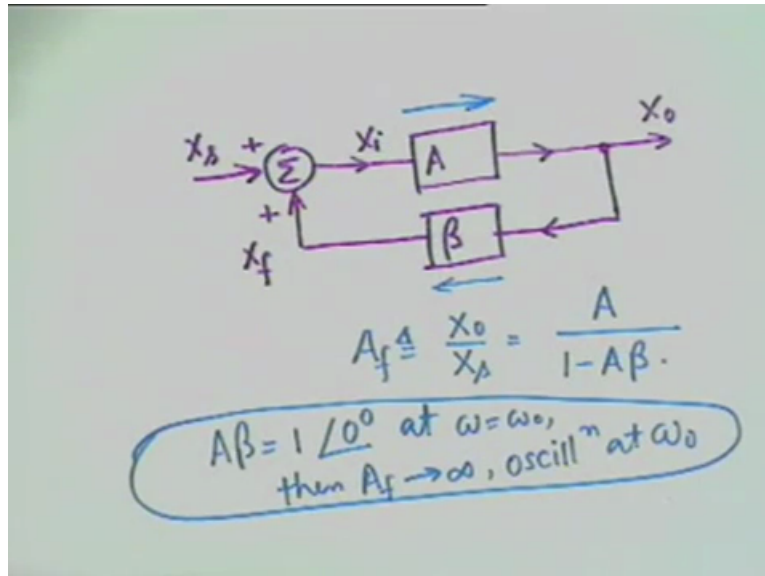 Xs + Σ Xi A Xo
+ Xf β
Af ≜ Xo/Xs = A/(1-Aβ).
Aβ = 1 ∠0° at ω=ωo,
then Af → ∞, oscillⁿ at ωo